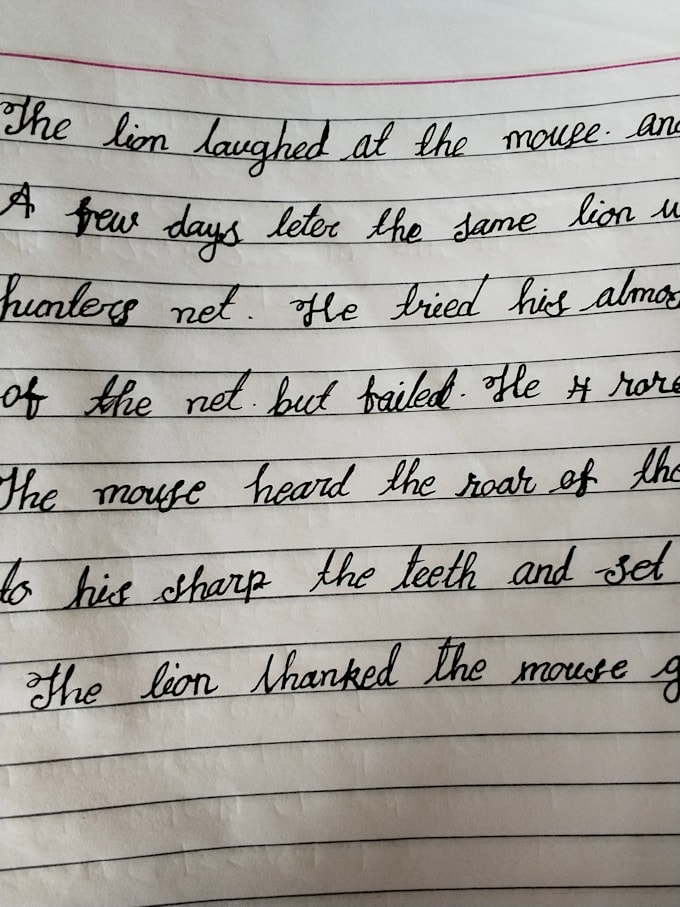 The lion laughed at the mouse. and
A few days leter the same lion
hunters net. He tried his almos
of the net. but failed. He rore
The mouse heard the roar of the
to his sharp the teeth and set
The lion thanked the mouse g